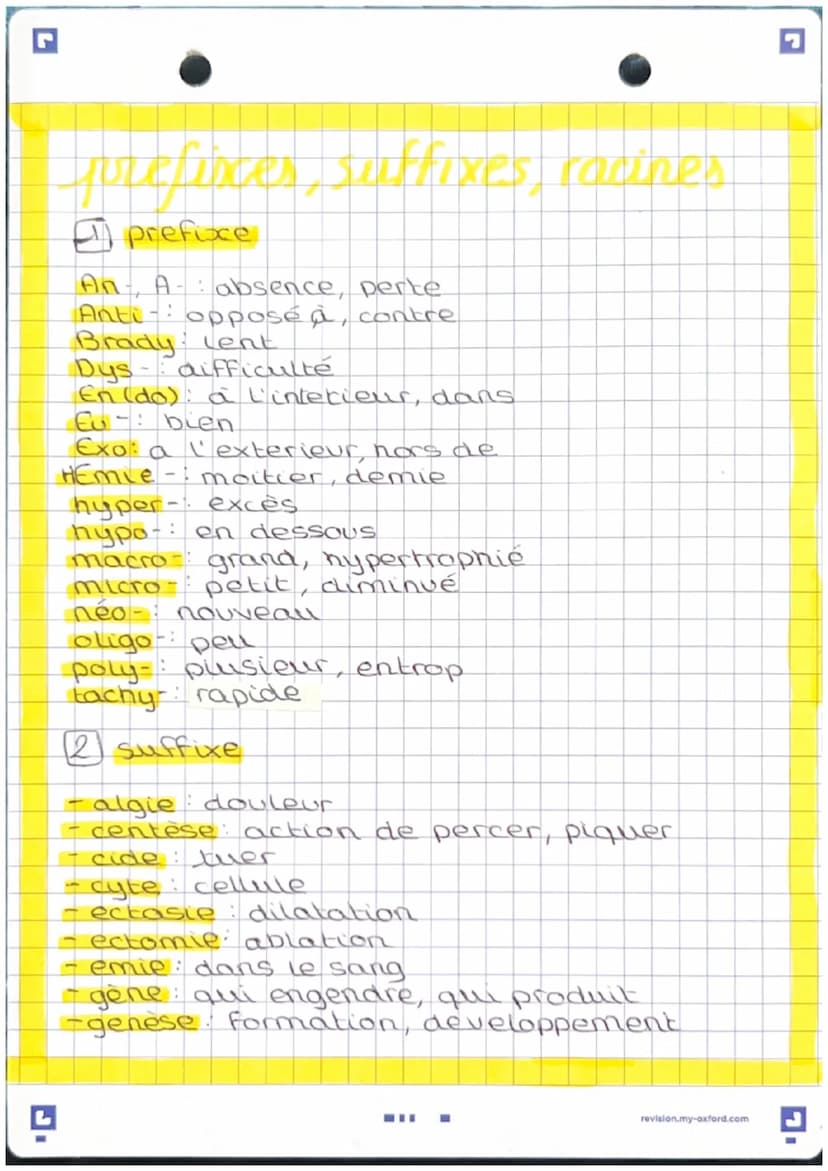 prefixes, suffixes, racines
1 prefixe
An-, A- : absence, perte
Anti-: opposé à, contre
Brady: lent
Dys-: difficulté
En(do): à l'interieur, dans
Eu-: bien
Exo: a l'exterieur, hors de
HEmie-: moitier, demie
hyper-: excès
hypo-: en dessous
macro-: grand, hypertrophié
micro-: petit, diminué
néo-: nouveau
oligo-: peu
poly-: plusieur, entrop
tachy-: rapide
2 suffixe
-algie: douleur
-centèse: action de percer, piquer
-cide: tuer
-cyte: cellule
-ectasie: dilatation
-ectomie: ablation
-emie: dans le sang
-gène: qui engendre, qui produit
-genèse: formation, développement
revision.my-oxford.com